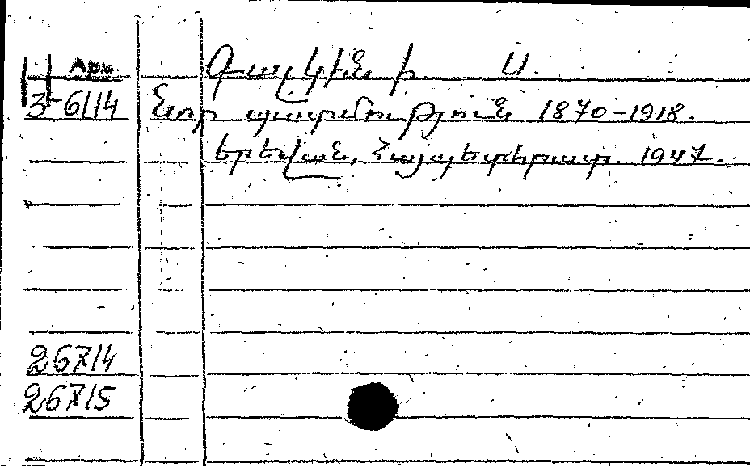 Գալկին Ի. Ս.
3-6114 Նոր պատմություն 1870-1918.
Երևան, Հայպետհրատ. 1947.
26714
26715